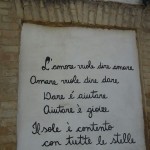 L'amore vuole dire amore
Amare vuole dire dare
Dare è aiutare
Aiutare è gioire
Il sole è contento
con tutte le stelle